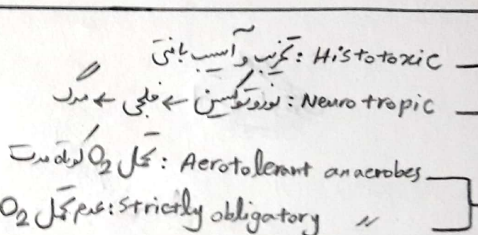 Histotoxic : تخریب و آسیب بافتی
Neurotropic : نوروتوکسین ← فلجی ← مرگ
Aerotolerant anaerobes : تحمل O2 کوتاه مدت
Strictly obligatory 〃 : عدم تحمل O2